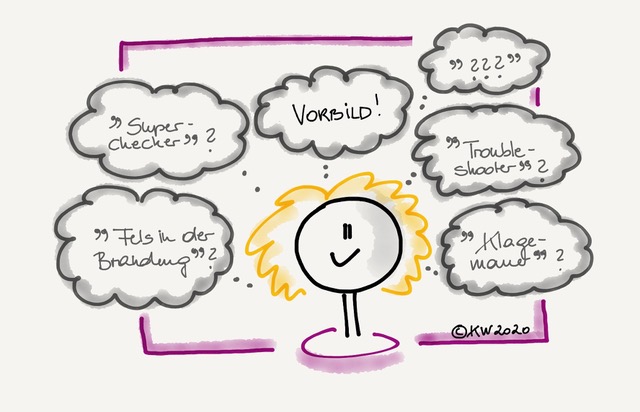 " ? ? ? "
VORBILD!
" Super-
checker " ?
" Trouble-
shooter " ?
" Fels in der
Brandung " ?
" Klage-
mauer " ?
©KW2020